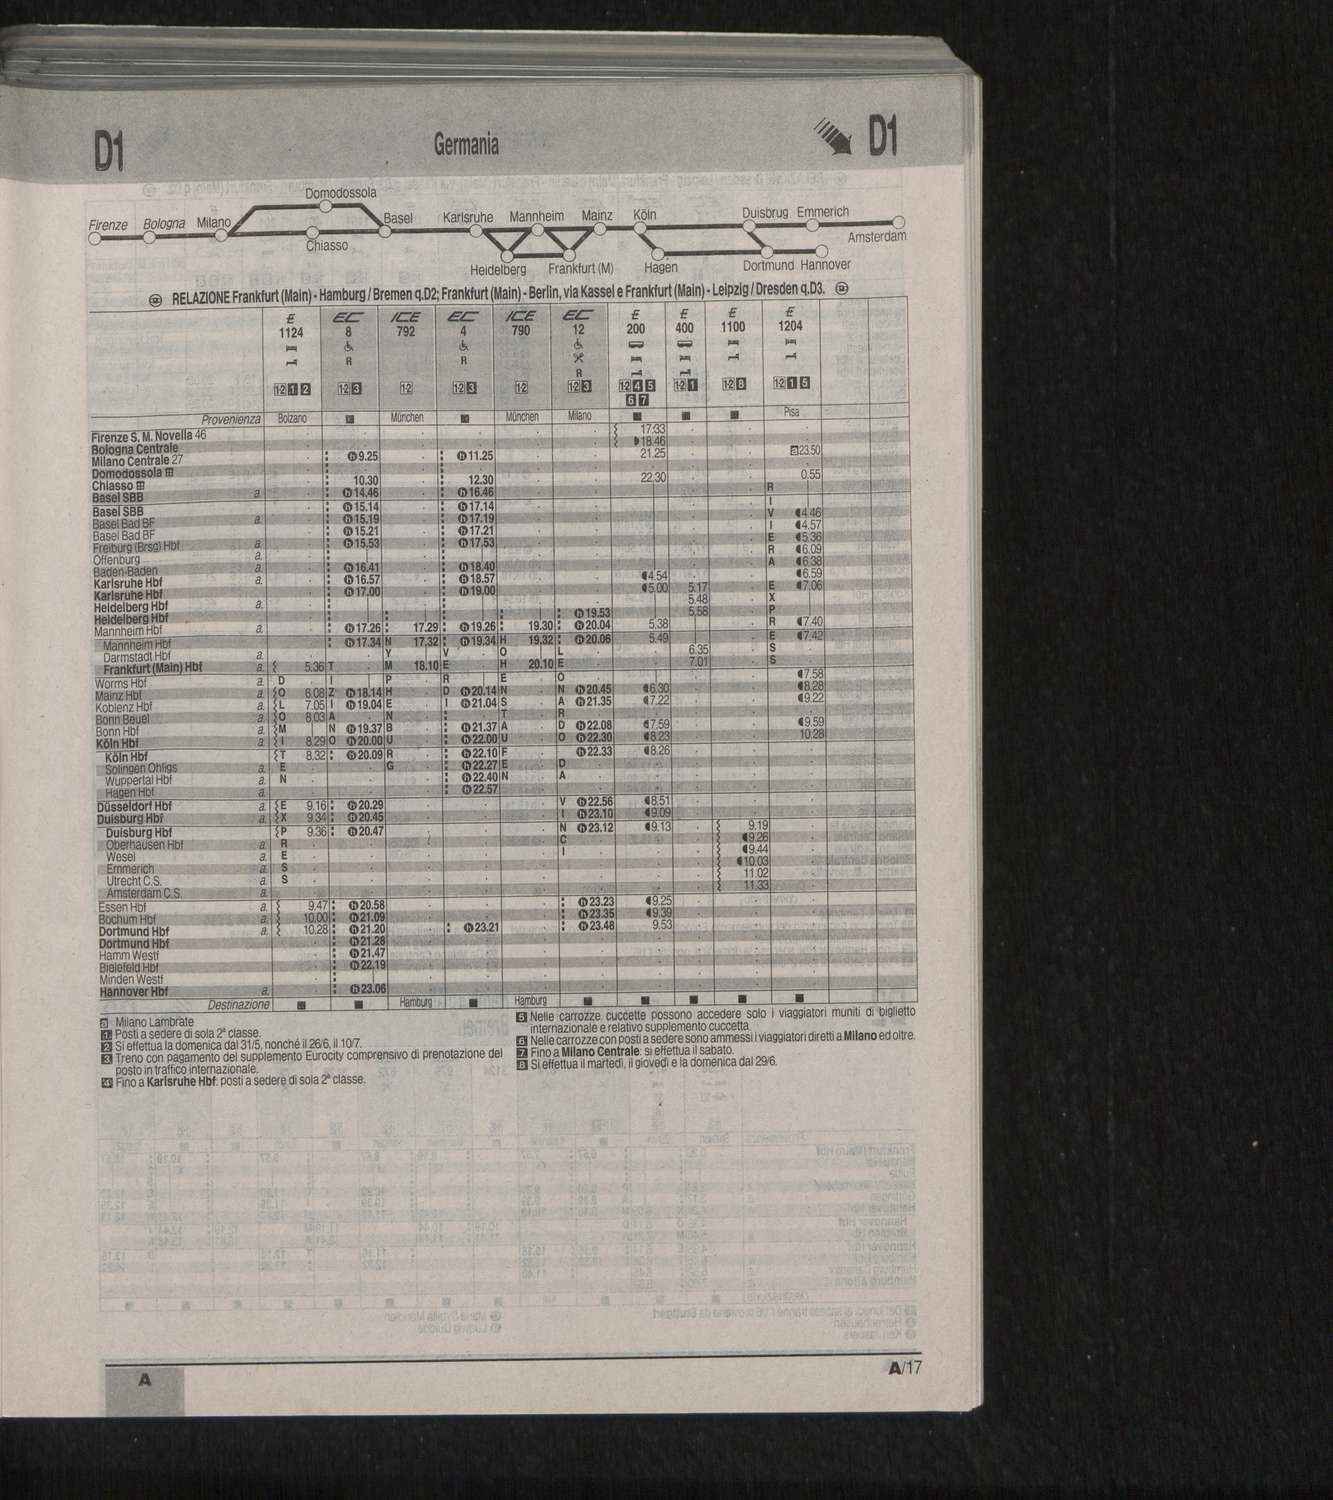 D1 Germania D1
Domodossola
Firenze Bologna Milano Basel Karlsruhe Mannheim Mainz Köln Duisbrug Emmerich
Chiasso Amsterdam
Heidelberg Frankfurt (M) Hagen Dortmund Hannover
RELAZIONE Frankfurt (Main) - Hamburg / Bremen q.D2; Frankfurt (Main) - Berlin, via Kassel e Frankfurt (Main) - Leipzig / Dresden q.D3.
E EC ICE EC ICE EC E E E E
1124 8 792 4 790 12 200 400 1100 1204
R R R
12 1 2 12 3 12 12 3 12 12 3 12 4 5 12 1 12 8 12 1 5
6 7
Provenienza Bolzano ■ München ■ München Milano ■ ■ ■ Pisa
Firenze S. M. Novella 46 17.33
Bologna Centrale 18.46
Milano Centrale 27 9.25 11.25 21.25 a 23.50
Domodossola
Chiasso 10.30 12.30 22.30 0.55
Basel SBB a. 14.46 16.46
Basel SBB 15.14 17.14
Basel Bad BF a. 15.19 17.19 4.46
Basel Bad BF 15.21 17.21 4.57
Freiburg (Brsg) Hbf a. 15.53 17.53 5.36
Offenburg a. 6.09
Baden-Baden a. 16.41 18.40 6.38
Karlsruhe Hbf a. 16.57 18.57 4.54 6.59
Karlsruhe Hbf 17.00 19.00 5.00 5.17 7.06
Heidelberg Hbf a. 5.48
Heidelberg Hbf 19.53 5.58
Mannheim Hbf a. 17.26 17.29 19.26 19.30 20.04 5.38 7.40
Mannheim Hbf 17.34 17.32 19.34 19.32 20.06 5.49 7.42
Darmstadt Hbf a. 6.35
Frankfurt (Main) Hbf a. 5.36 18.10 20.10 7.01
Worms Hbf a. 7.58
Mainz Hbf a. 6.08 18.14 20.14 20.45 6.30 8.28
Koblenz Hbf a. 7.05 19.04 21.04 21.35 7.22 9.22
Bonn Beuel a. 8.03
Bonn Hbf a. 19.37 21.37 22.08 7.59 9.59
Köln Hbf a. 8.29 20.00 22.00 22.30 8.23 10.28
Köln Hbf 8.32 20.09 22.10 22.33 8.26
Solingen Ohligs a. 22.27
Wuppertal Hbf a. 22.40
Hagen Hbf a. 22.57
Düsseldorf Hbf a. 9.16 20.29 22.56 8.51
Duisburg Hbf a. 9.34 20.45 23.10 9.09
Duisburg Hbf 9.36 20.47 23.12 9.13 9.19
Oberhausen Hbf a. 9.26
Wesel a. 9.44
Emmerich a. 10.03
Utrecht C.S. a. 11.02
Amsterdam C.S. a. 11.33
Essen Hbf a. 9.47 20.58 23.23 9.25
Bochum Hbf a. 10.00 21.09 23.35 9.39
Dortmund Hbf a. 10.28 21.20 23.21 23.48 9.53
Dortmund Hbf 21.28
Hamm Westf 21.47
Bielefeld Hbf 22.19
Minden Westf
Hannover Hbf a. 23.06
Destinazione ■ ■ Hamburg ■ Hamburg ■ ■ ■ ■ ■
a Milano Lambrate
1 Posti a sedere di sola 2ª classe.
2 Si effettua la domenica dal 31/5, nonché il 26/6, il 10/7.
3 Treno con pagamento del supplemento Eurocity comprensivo di prenotazione del
posto in traffico internazionale.
4 Fino a Karlsruhe Hbf: posti a sedere di sola 2ª classe.
5 Nelle carrozze cuccette possono accedere solo i viaggiatori muniti di biglietto
internazionale e relativo supplemento cuccetta.
6 Nelle carrozze con posti a sedere sono ammessi i viaggiatori diretti a Milano ed oltre.
7 Fino a Milano Centrale: si effettua il sabato.
8 Si effettua il martedì, il giovedì e la domenica dal 29/6.
A A/17